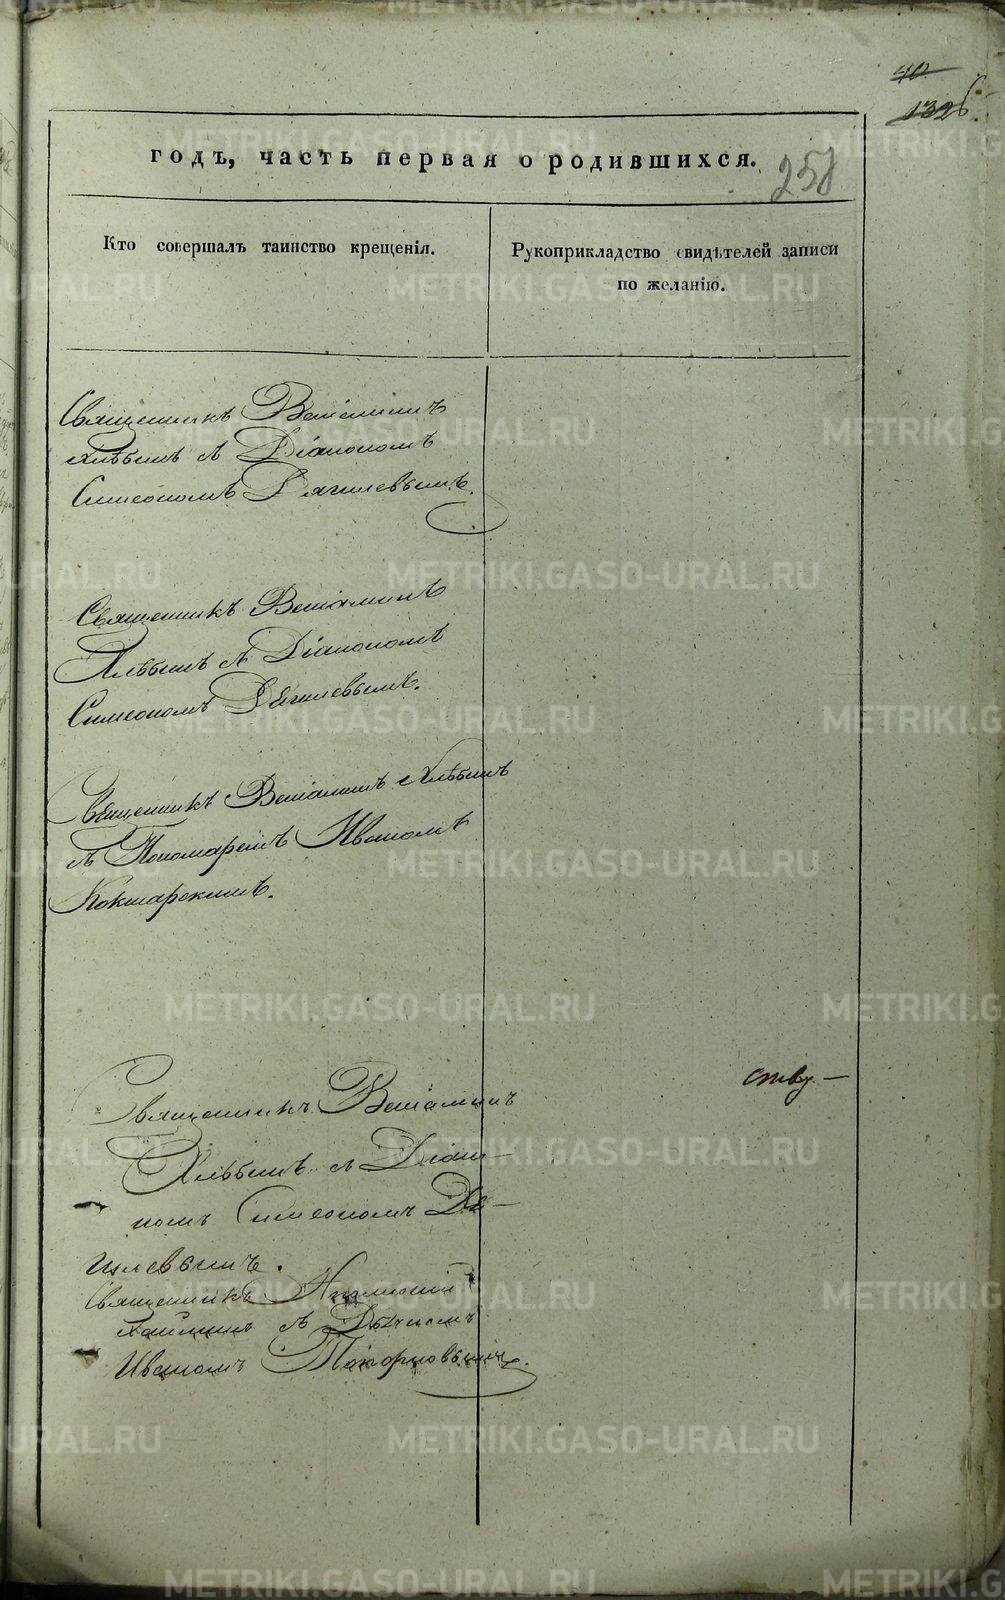 40
132б
годъ, часть первая о родившихся.
258
Кто совершалъ таинство крещенія.
Рукоприкладство свидѣтелей записи
по желанію.
Священникъ Веніаминъ
Хлѣбинъ съ Діакономъ
Симеономъ Дягилевымъ.
Священникъ Веніаминъ
Хлѣбинъ съ Діакономъ
Симеономъ Дягилевымъ.
Священникъ Веніаминъ Хлѣбинъ
съ Пономаремъ Иваномъ
Кокшарскимъ.
Священникъ Веніаминъ
Хлѣбинъ съ Діако-
номъ Симеономъ Дя-
гилевымъ.
Священникъ
съ Дьячкомъ
Иваномъ Топорковымъ.
ству —
METRIKI.GASO-URAL.RU